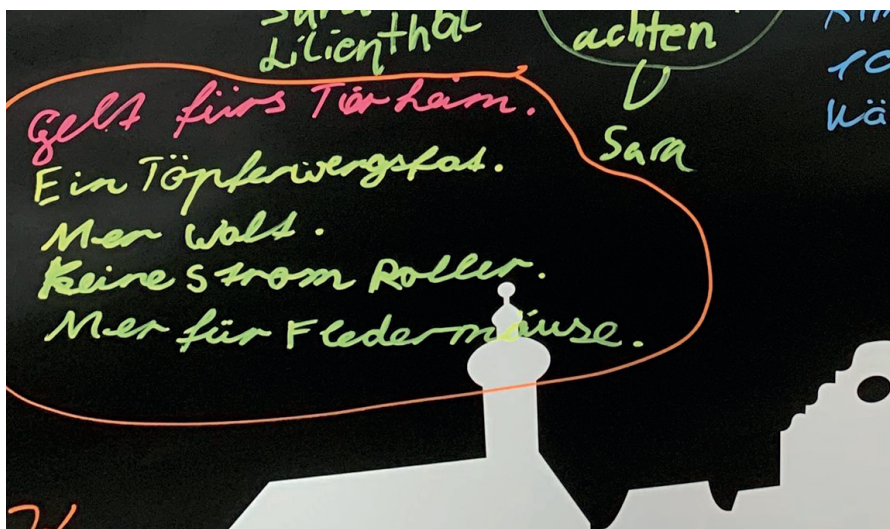 Lilienthal
achten
Sara
Gelt fürs Törheim.
Ein Töpferwergsfat.
Mer Walt.
Keine Strom Roller.
Mer für Fledermäuse.
10